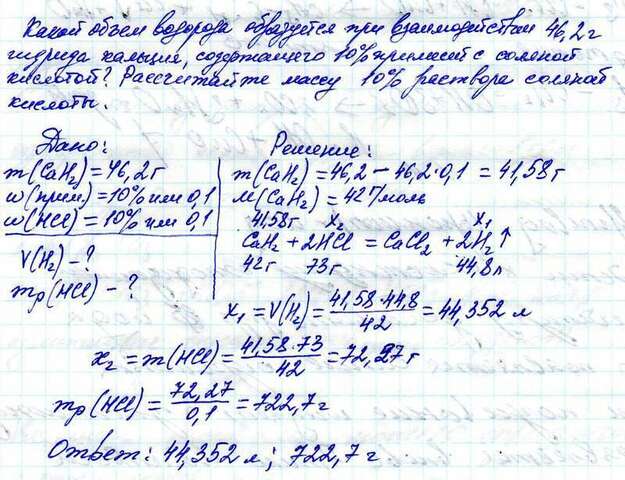 Какой объем водорода образуется при взаимодействии 46,2г
гидрида кальция, содержащего 10% примесей с соляной
кислотой? Рассчитайте массу 10% раствора соляной
кислоты.
Дано:
m(CaH₂)=46,2г
ω(прим.)=10% или 0,1
ω(HCl)=10% или 0,1
V(H₂) - ?
mр(HCl) - ?
Решение:
m(CaH₂)=46,2 - 46,2·0,1 = 41,58г
M(CaH₂)=42г/моль
41,58г x₂ x₁
CaH₂ + 2HCl = CaCl₂ + 2H₂↑
42г 73г 44,8л
x₁ = V(H₂) = 41,58·44,8/42 = 44,352 л
x₂ = m(HCl) = 41,58·73/42 = 72,27г
mр(HCl) = 72,27/0,1 = 722,7г
Ответ: 44,352 л; 722,7 г